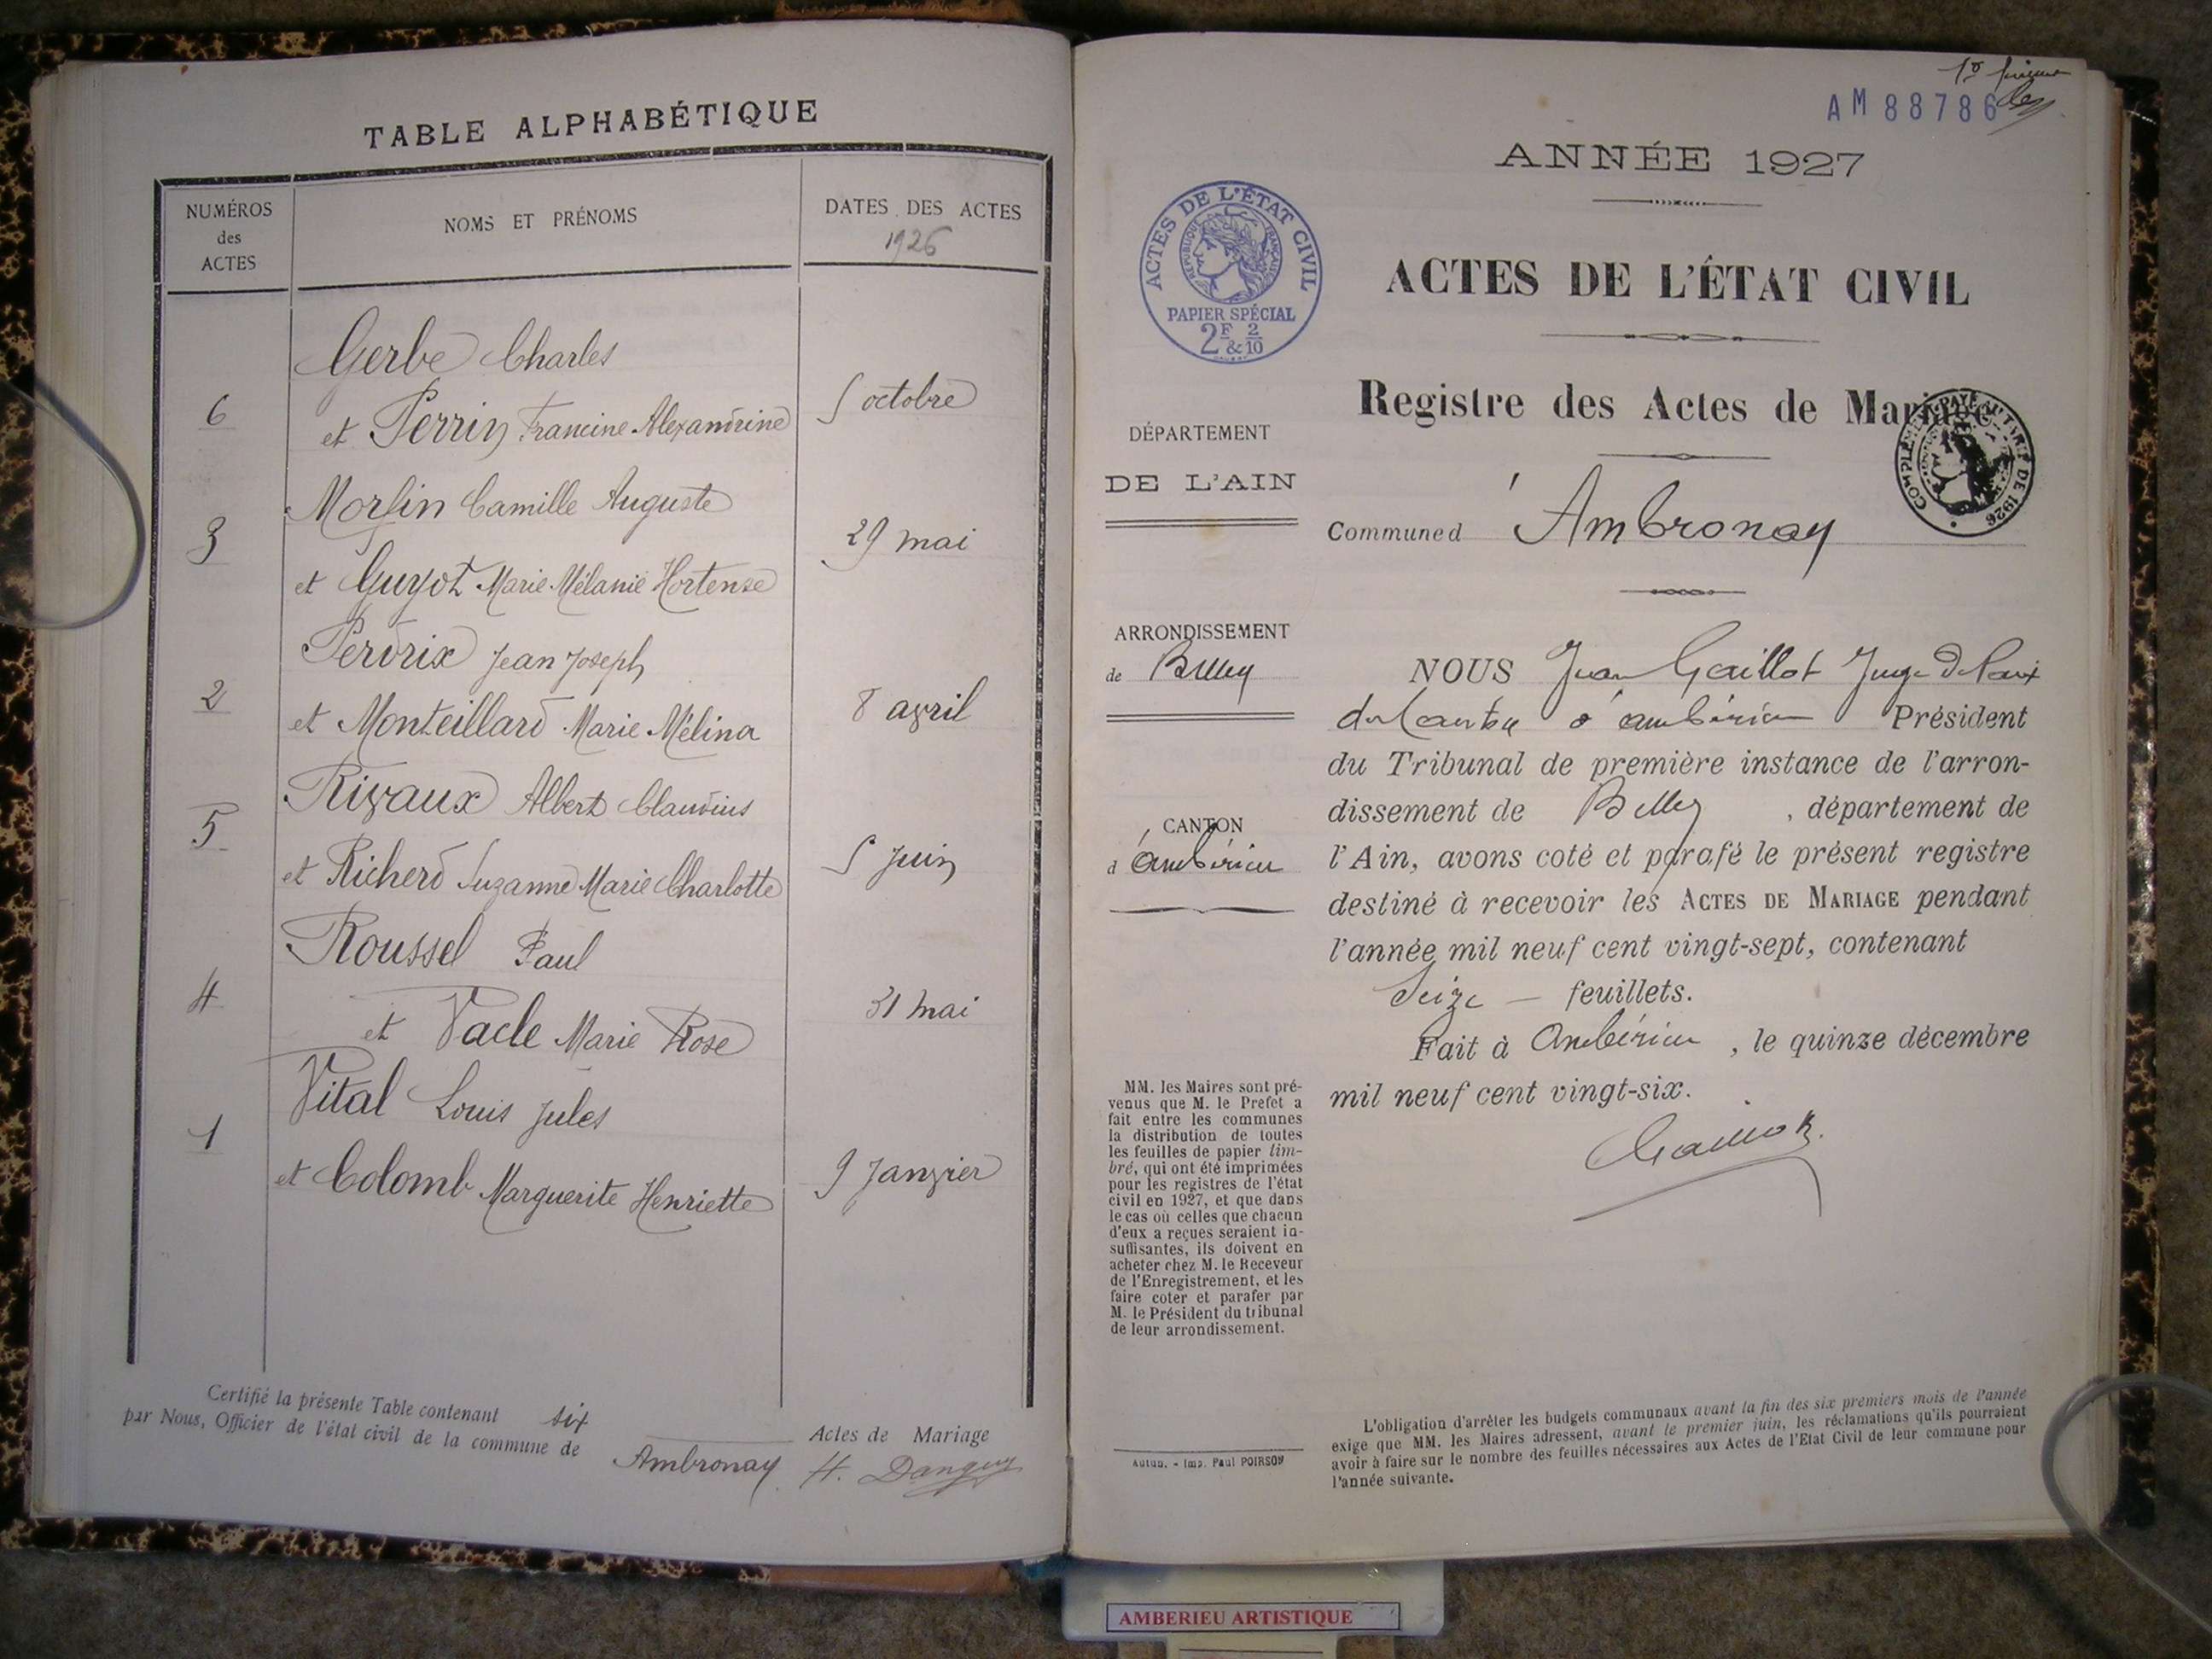 TABLE ALPHABÉTIQUE
NUMÉROS
des
ACTES
NOMS ET PRÉNOMS
DATES DES ACTES
1926
Gerbe Charles
6 et Perrin Francine Alexandrine 5 octobre
Morfin Camille Auguste
3 29 mai
et Guyot Marie Mélanie Hortense
Perdrix Jean Joseph
2 et Monteillard Marie Mélina 8 avril
Rivaux Albert Claudius
5 et Richerd Suzanne Marie Charlotte 5 Juin
Roussel Paul
4 et Vacle Marie Rose 31 mai
Vital Louis Jules
1 et Colomb Marguerite Henriette 9 Janvier
Certifié la présente Table contenant six Actes de Mariage
par Nous, Officier de l'état civil de la commune de Ambronay H. Danguy
AM 88786
ANNÉE 1927
ACTES DE L'ÉTAT CIVIL
RÉPUBLIQUE FRANÇAISE
PAPIER SPÉCIAL
2F & 2/10
ACTES DE L'ÉTAT CIVIL
Registre des Actes de Mariage
COMPLÉMENT PAYÉ AU TARIF DE 1926
DÉPARTEMENT
DE L'AIN
Commune d' Ambronay
ARRONDISSEMENT
de Belley
CANTON
d'Ambérieu
NOUS Jean Gaillot Juge de Paix
du Canton d'Ambérieu Président
du Tribunal de première instance de l'arron-
dissement de Belley, département de
l'Ain, avons coté et parafé le présent registre
destiné à recevoir les ACTES DE MARIAGE pendant
l'année mil neuf cent vingt-sept, contenant
Seize — feuillets.
Fait à Ambérieu, le quinze décembre
mil neuf cent vingt-six.
Gaillot
MM. les Maires sont pré-
venus que M. le Préfet a
fait entre les communes
la distribution de toutes
les feuilles de papier tim-
bré, qui ont été imprimées
pour les registres de l'état
civil en 1927, et que dans
le cas où celles que chacun
d'eux a reçues seraient in-
suffisantes, ils doivent en
acheter chez M. le Receveur
de l'Enregistrement, et les
faire coter et parafer par
M. le Président du tribunal
de leur arrondissement.
Autun. - Imp. Paul POIRSON
L'obligation d'arrêter les budgets communaux avant la fin des six premiers mois de l'année
exige que MM. les Maires adressent, avant le premier juin, les réclamations qu'ils pourraient
avoir à faire sur le nombre des feuilles nécessaires aux Actes de l'Etat Civil de leur commune pour
l'année suivante.
AMBERIEU ARTISTIQUE